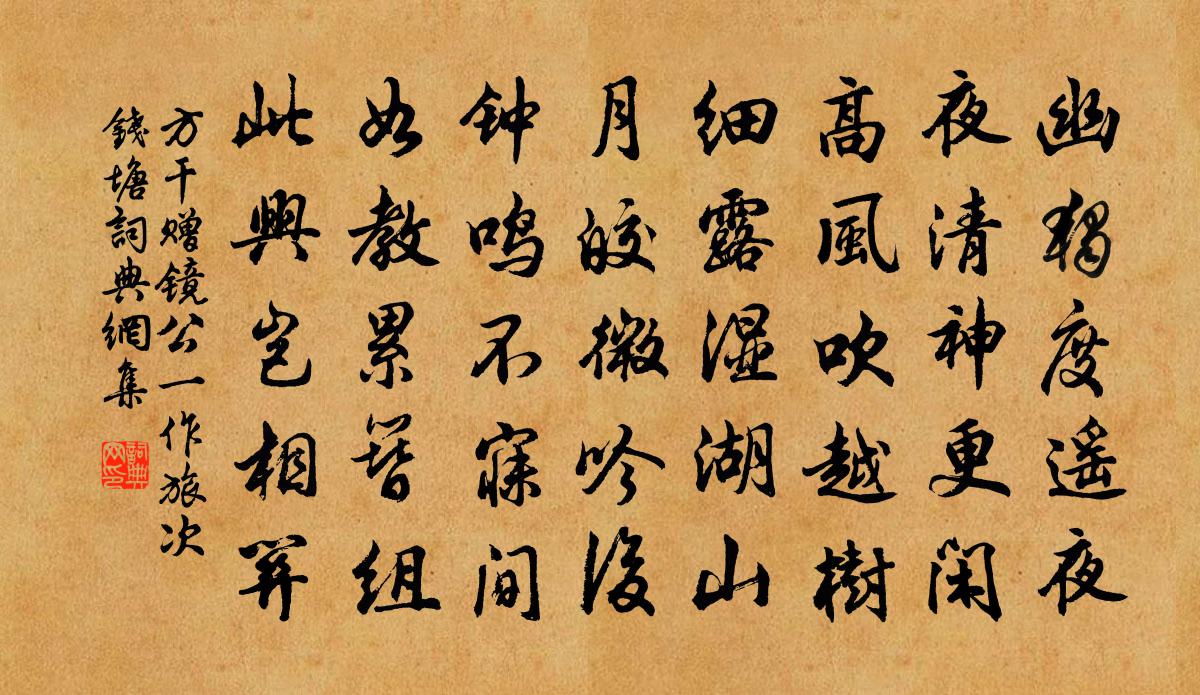 幽独度遥夜
夜清神更闲
高風吹越樹
细露湿湖山
月皎微吟後
钟鸣不寐间
如教累簪组
此興岂相关
方干赠镜公一作旅次
錢塘詞典網集
詞典
网印